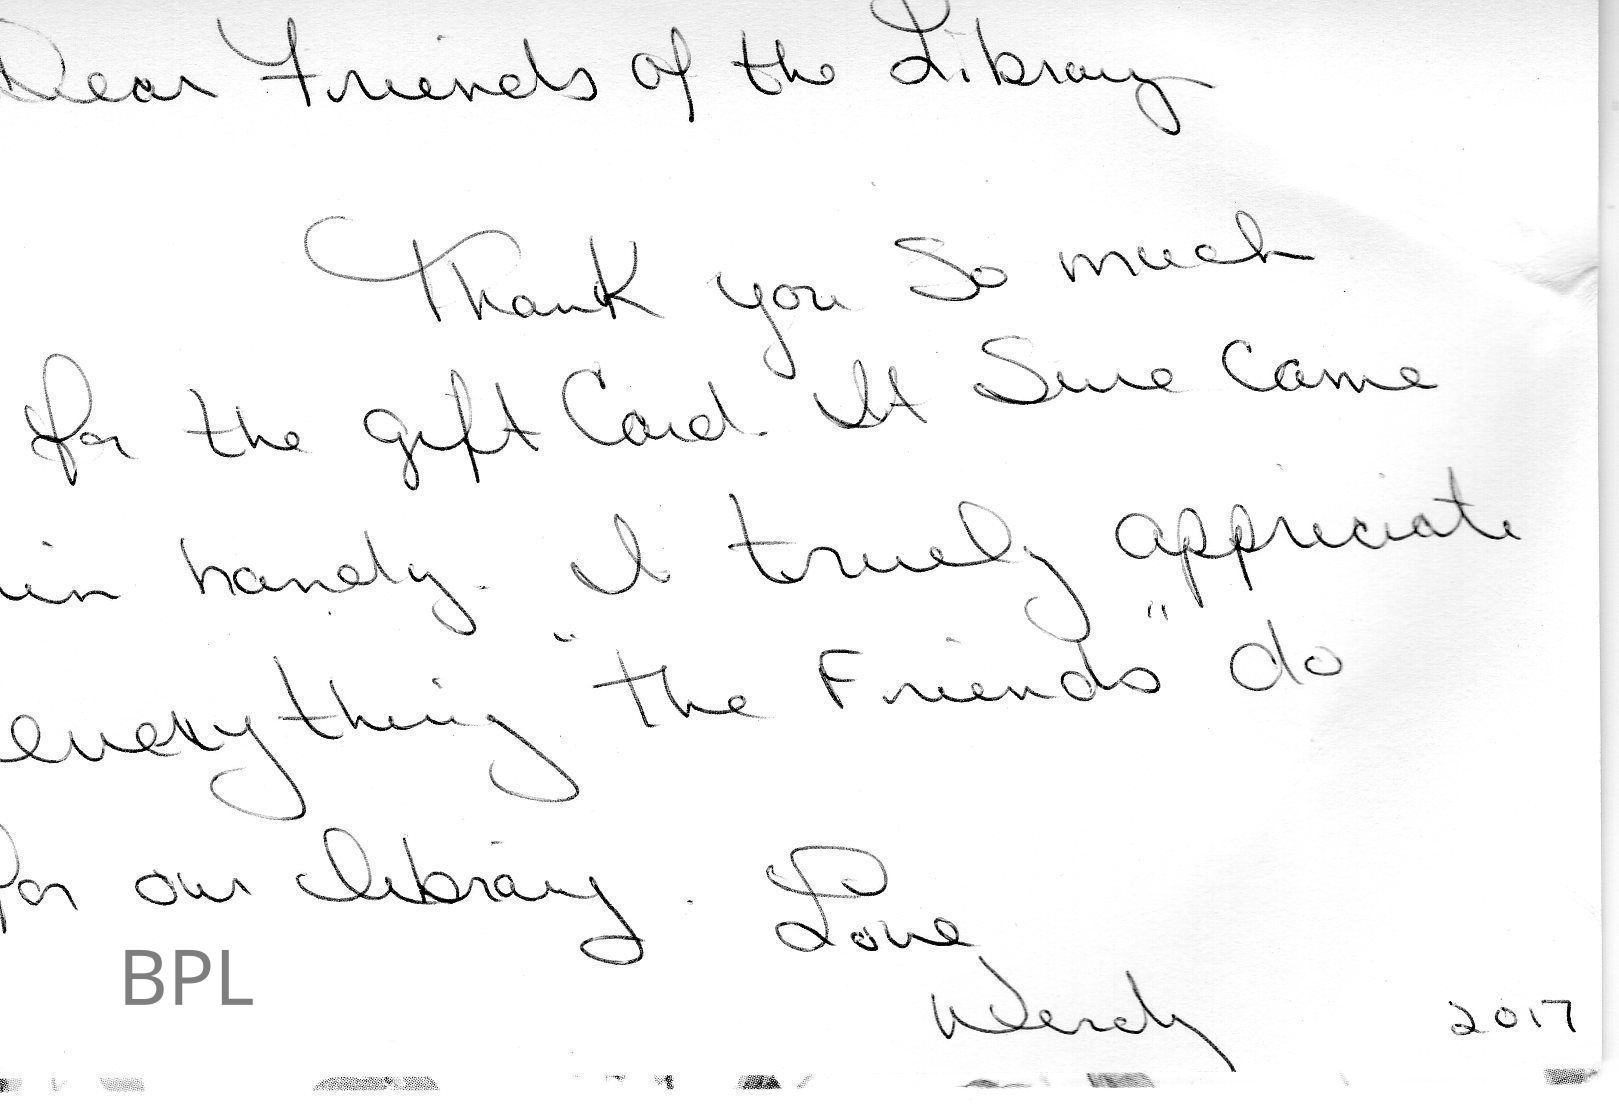 Dear Friends of the Library
Thank you so much
for the gift Card. It Sure Came
in handy. I truely appreciate
everything "the Friends" do
for our library. Love
Wendy
BPL
2017